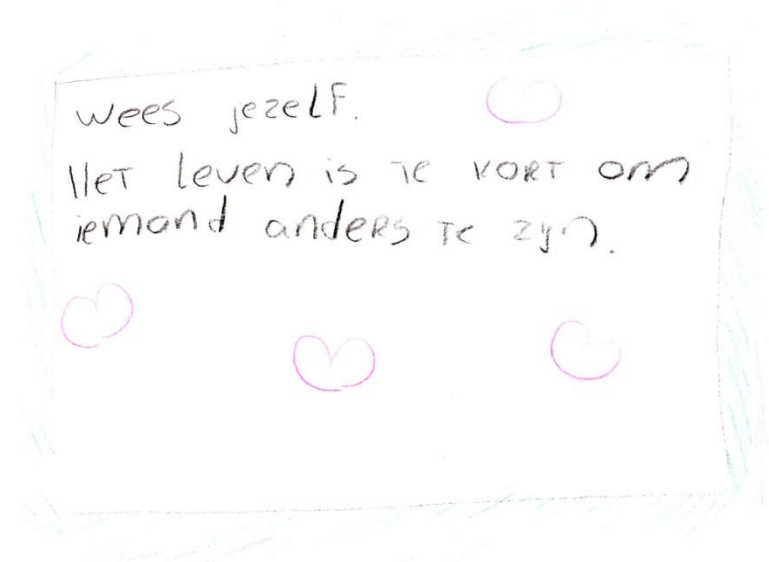 Wees jezelf.
Het leven is te kort om
iemand anders te zijn.